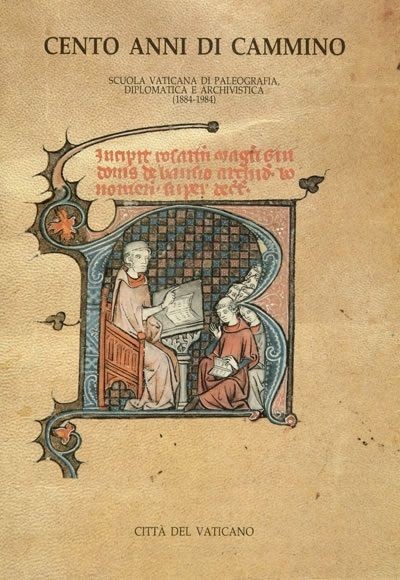 CENTO ANNI DI CAMMINO
SCUOLA VATICANA DI PALEOGRAFIA,
DIPLOMATICA E ARCHIVISTICA
(1884-1984)
Incipit rosariū magr̄i Gui
donis de baisio archid. bo
nonien. super decre.
CITTÀ DEL VATICANO